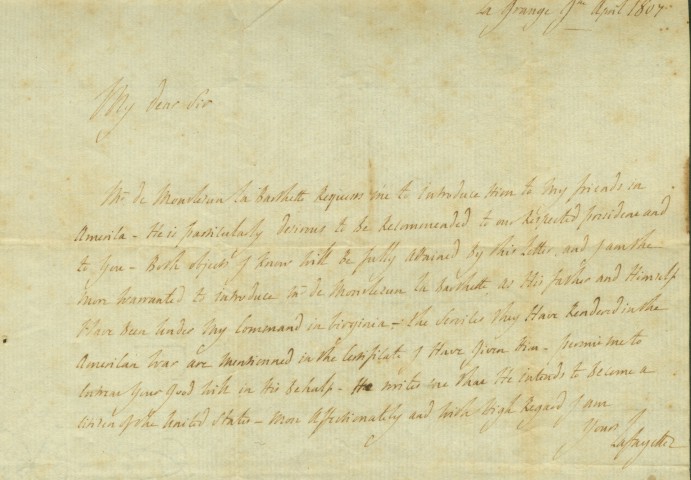 La Grange 9th April 1807
My dear Sir
Mr. de Monlezun la Barthette Requests me to introduce Him to My friends in
America - He is particularly desirous to Be Recommended to our Respected president and
to You - Both objects I know will be fully attained By this Letter, and I am the
more warranted to introduce Mr. de Monlezun la Barthette as His father and Himself
Have Been Under My Command in Virginia - the Services they Have Rendered in the
American War are mentionned in the Certificate I Have Given Him - permit me to
Your Good Will in His Behalf - He writes me that He intends to Become a
Citizen of the United States - Most Affectionately and With High Regard I am
Yours
Lafayette